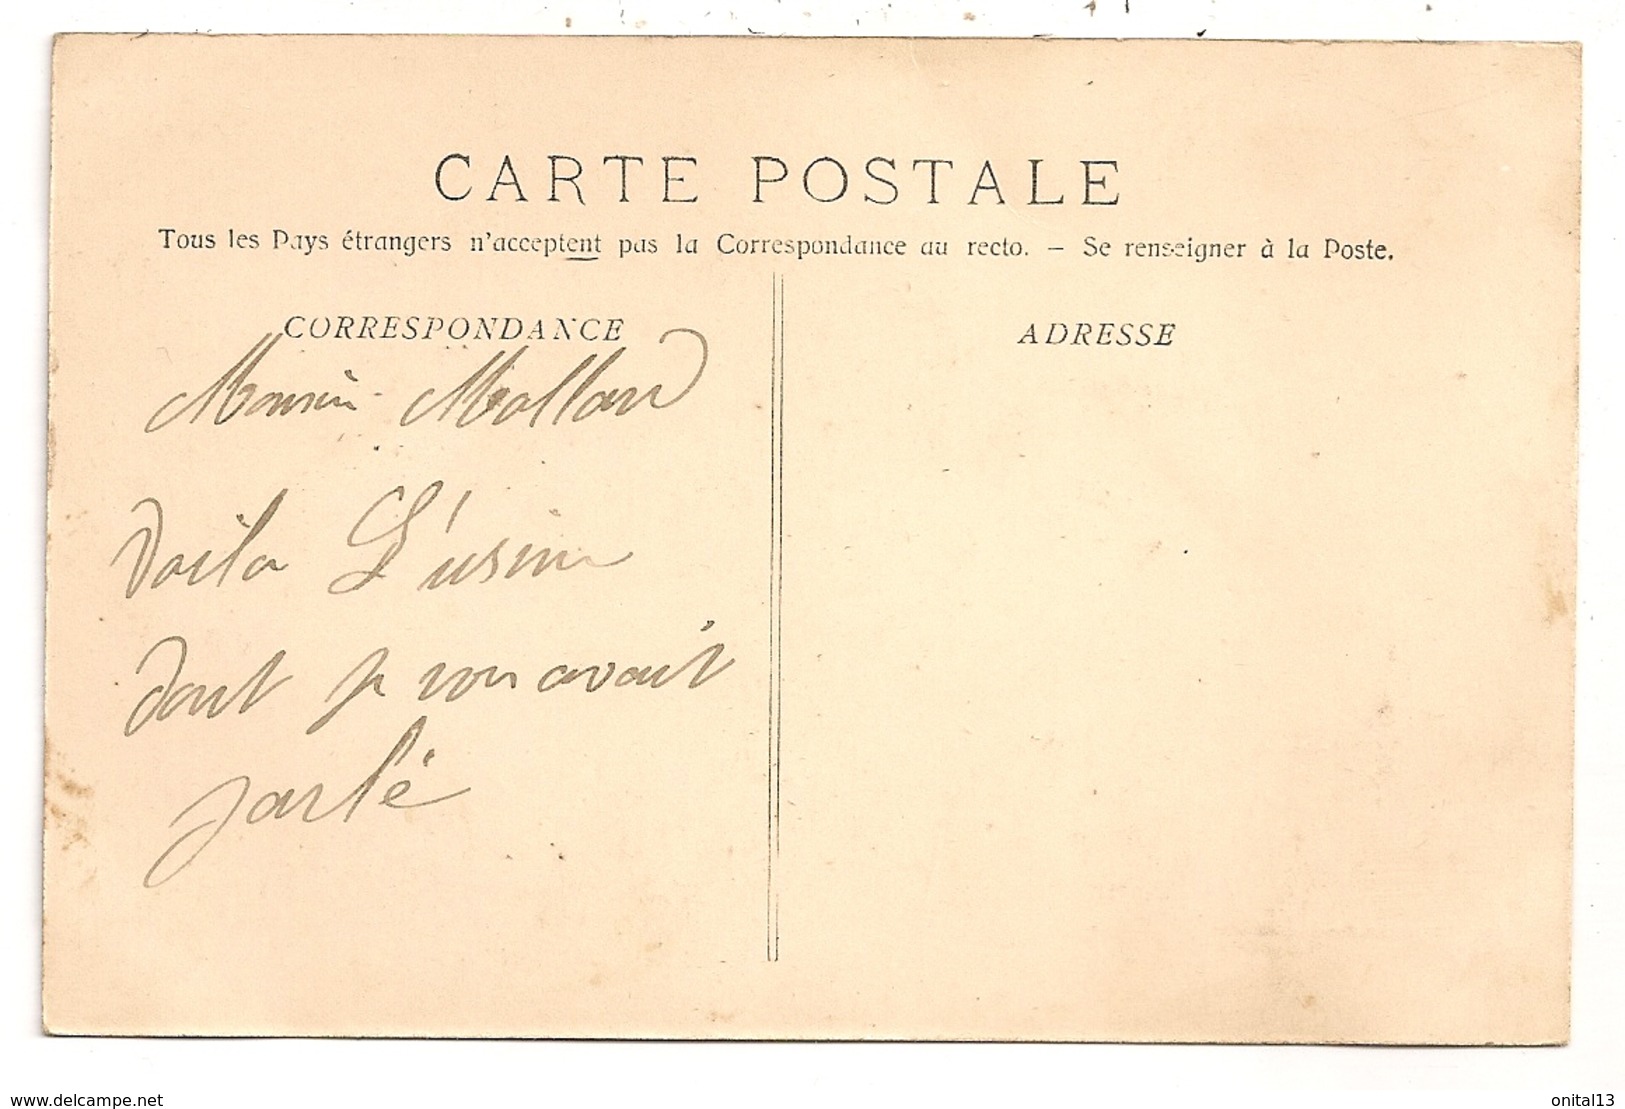 CARTE POSTALE
Tous les Pays étrangers n'acceptent pas la Correspondance au recto. — Se renseigner à la Poste.
CORRESPONDANCE
ADRESSE
Mollard
Voila L'usine
dont je vous avait
parlé
www.delcampe.net
onital13